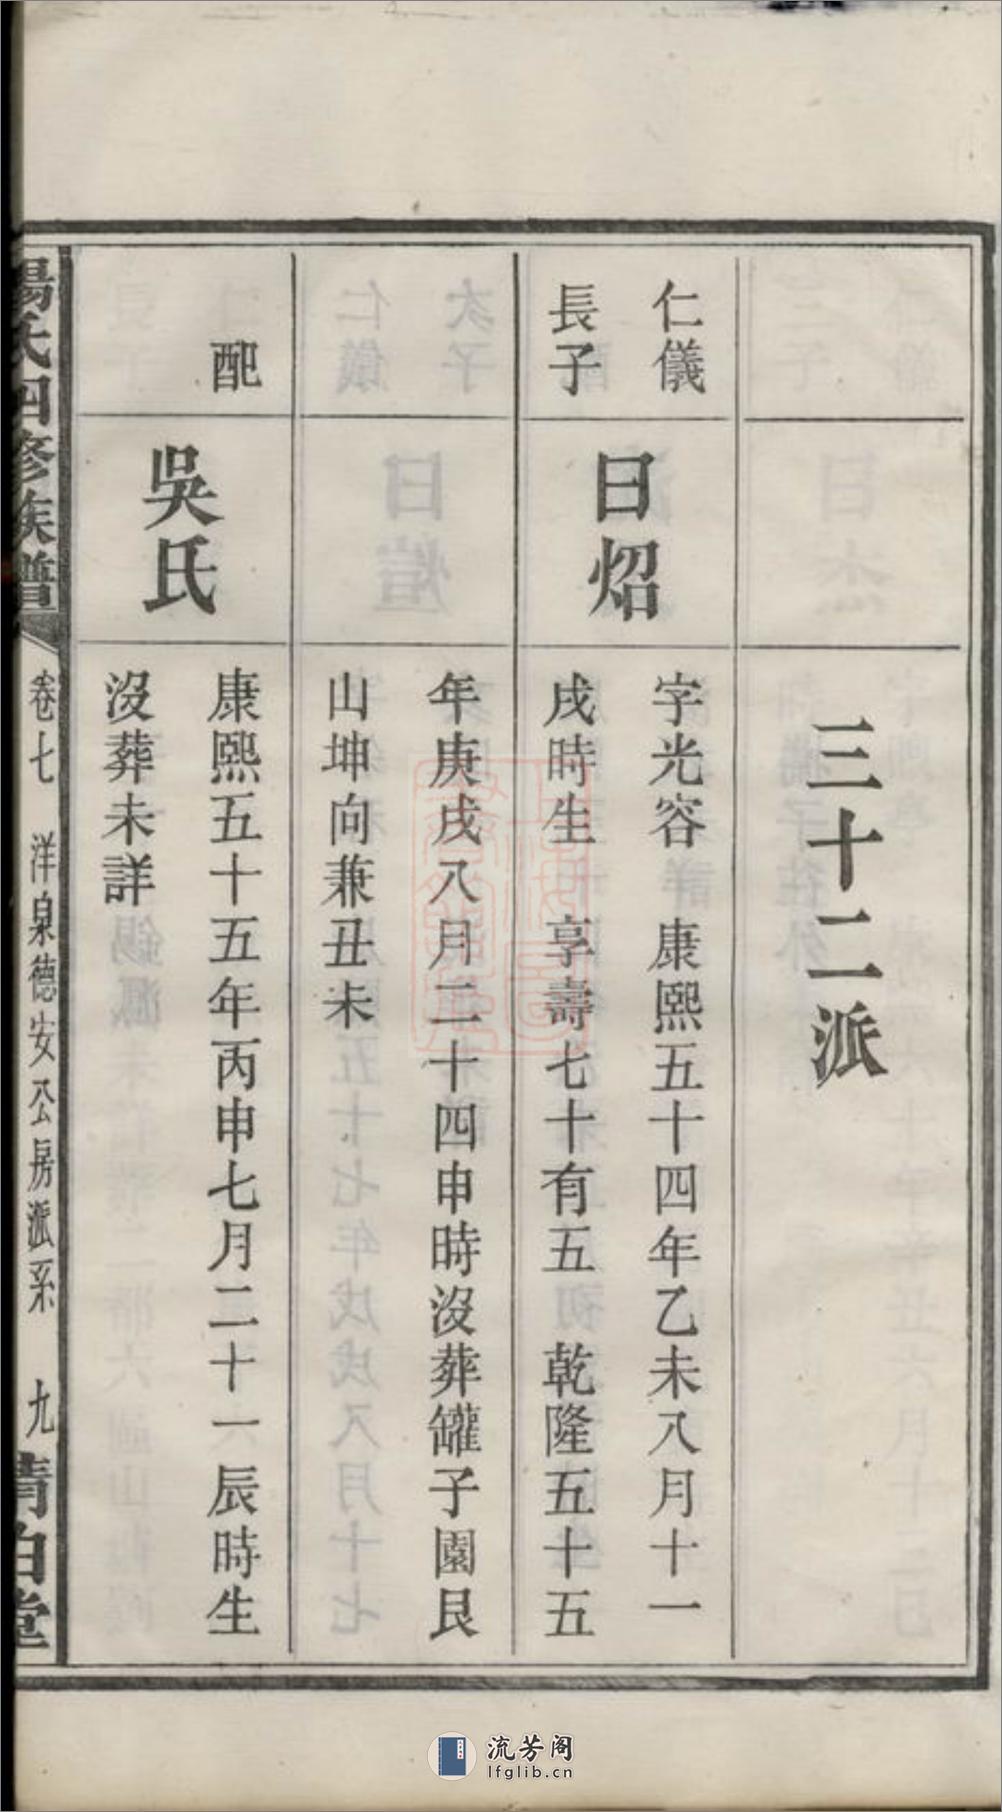 三十二派
仁儀
長子
日炤
字光容 康熙五十四年乙未八月十一
戌時生 享壽七十有五 乾隆五十五
年庚戌八月二十四申時沒葬罐子園艮
山坤向兼丑未
配
吳氏
康熙五十五年丙申七月二十一辰時生
沒葬未詳
楊氏四修族譜
卷七 洋泉德安公房派系 九
清白堂
流芳阁
lfglib.cn